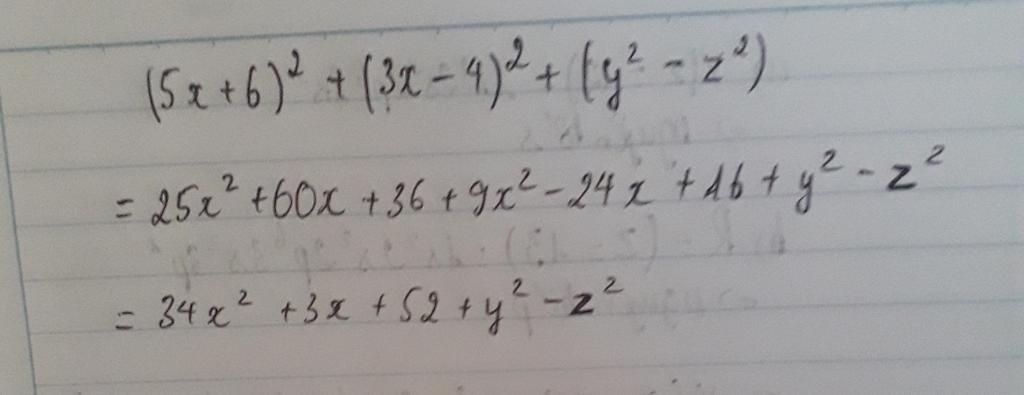 (5x+6)² + (3x-4)² + (y² - z²)
= 25x² +60x +36 +9x² -24x +16 + y² - z²
= 34x² +3x +52 +y² -z²